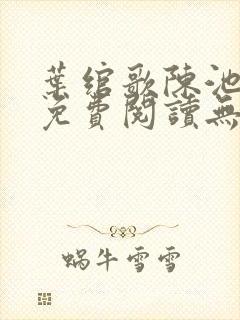 葉綰歌陳池
免費閱讀無
蝸牛雪雪